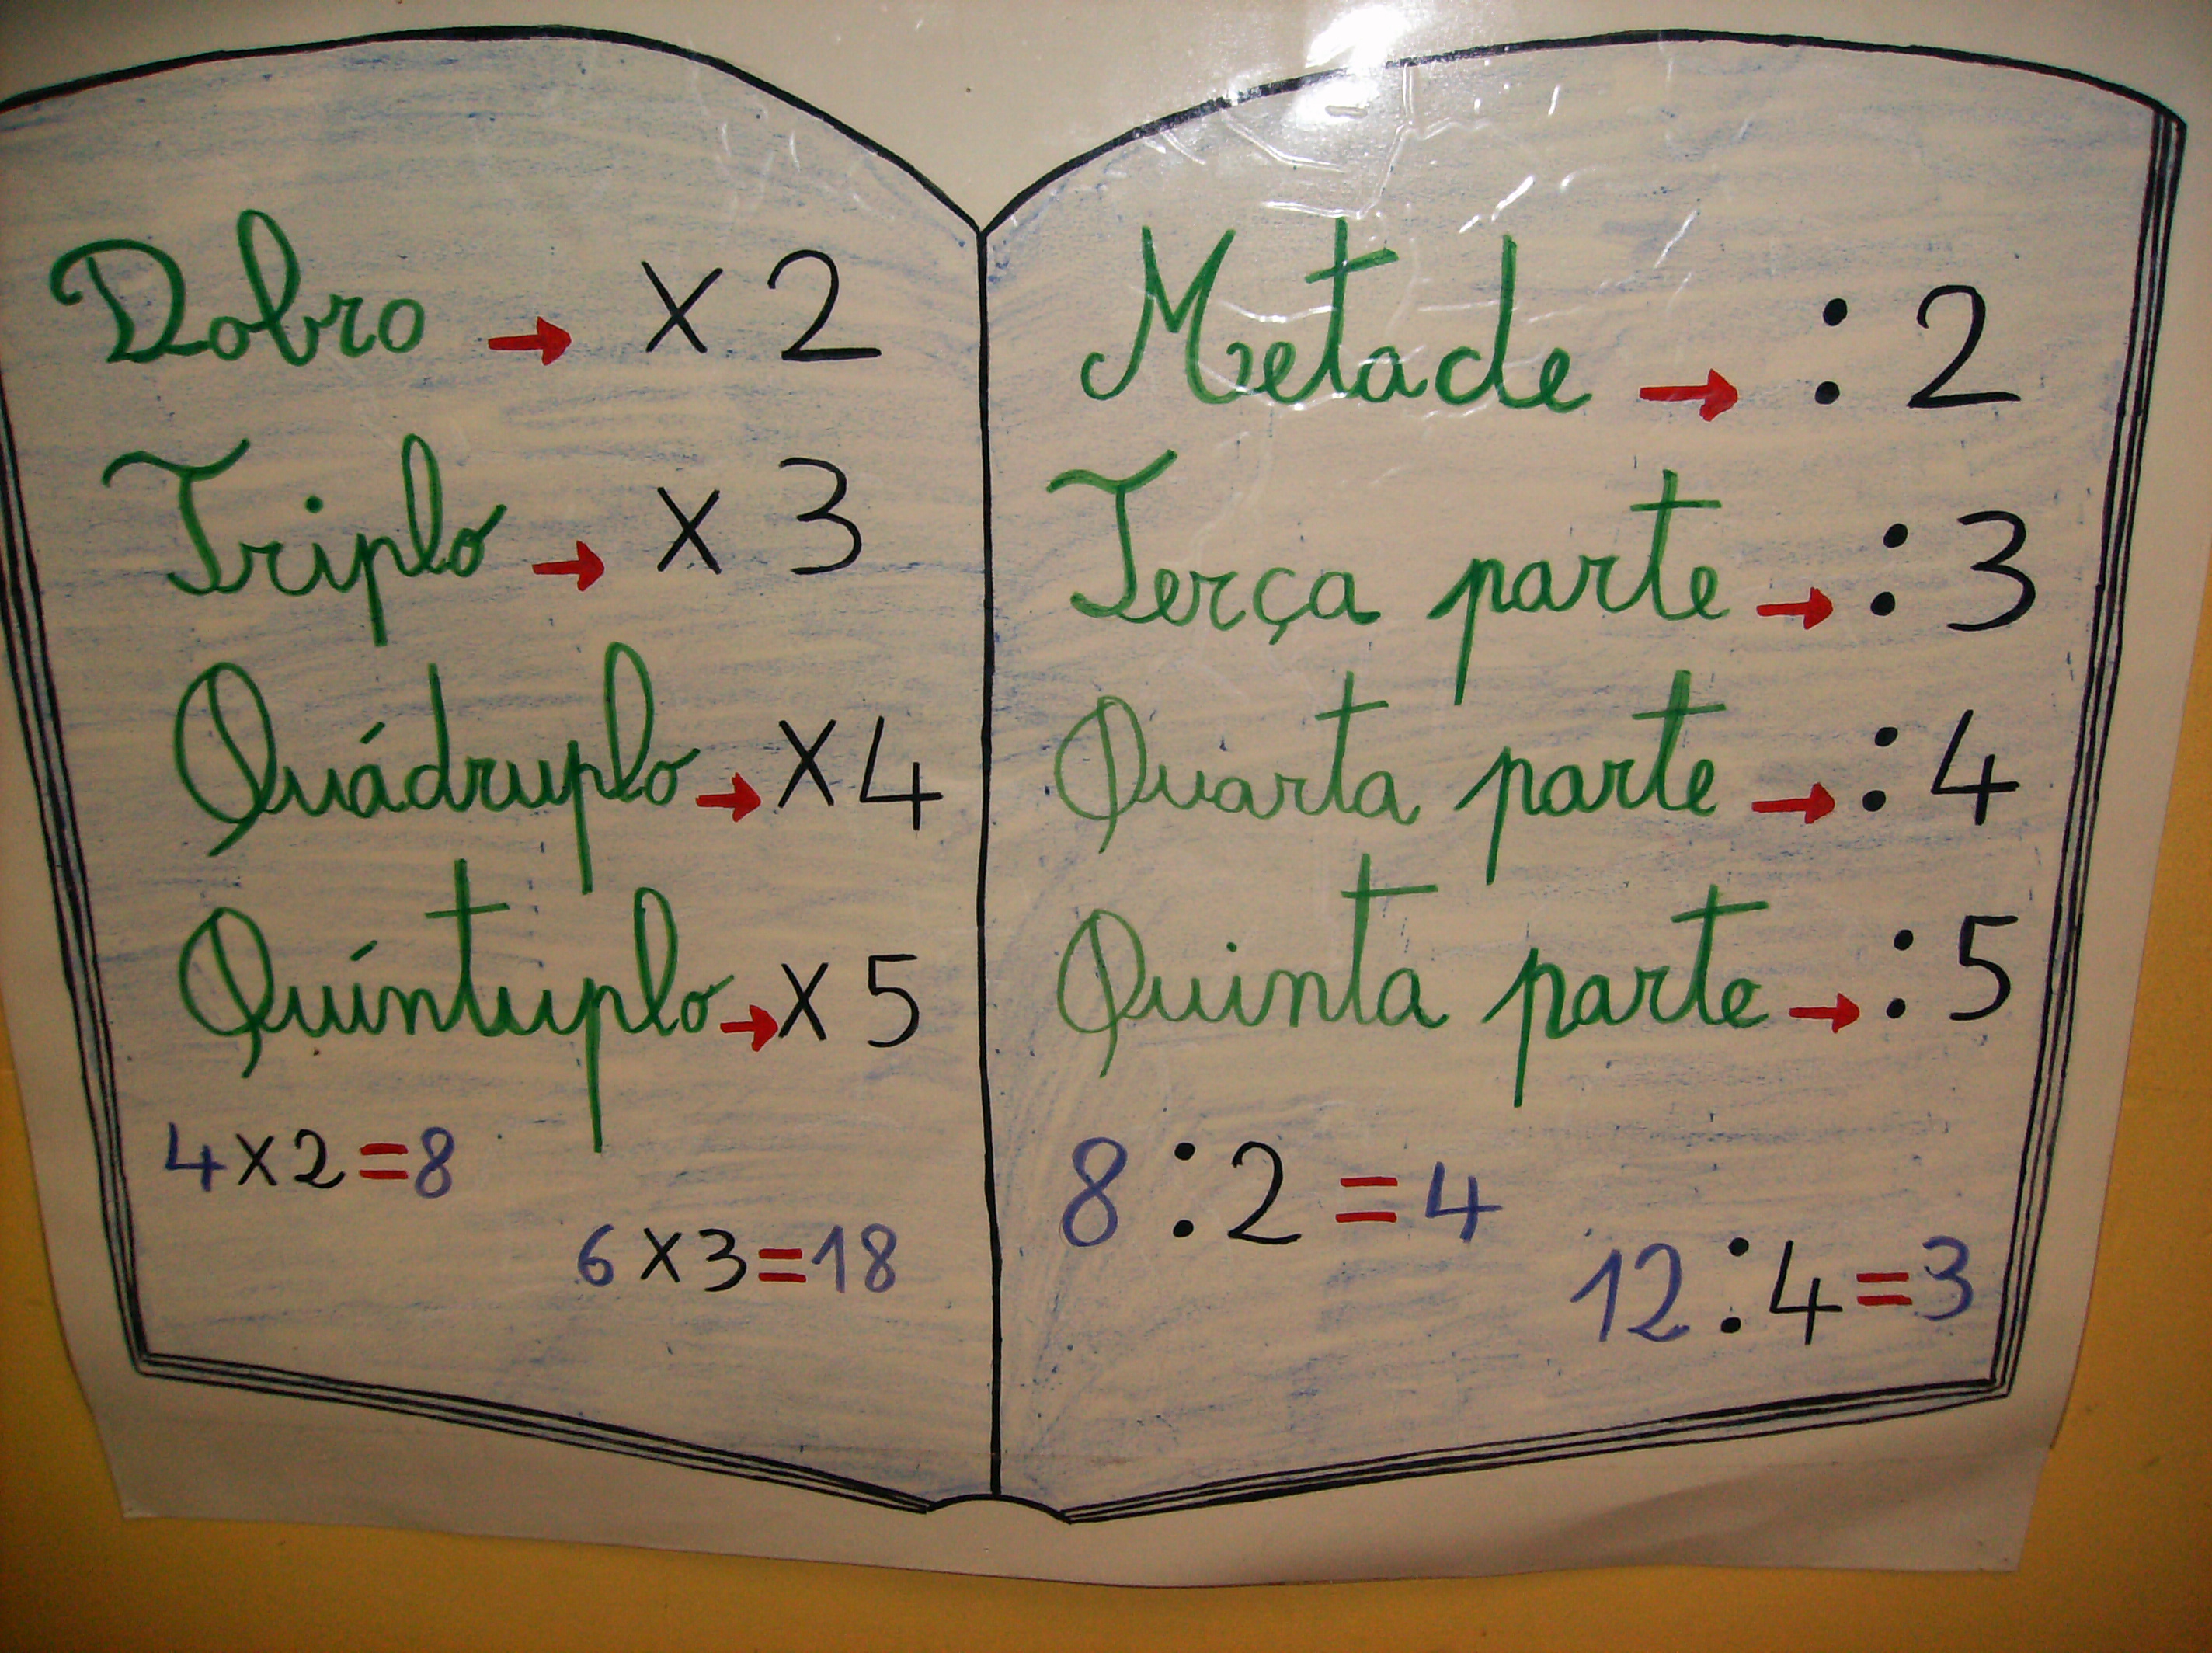 Dobro → x 2
Triplo → x 3
Quádruplo → x 4
Quíntuplo → x 5
4 x 2 = 8
6 x 3 = 18
Metade → : 2
Terça parte → : 3
Quarta parte → : 4
Quinta parte → : 5
8 : 2 = 4
12 : 4 = 3